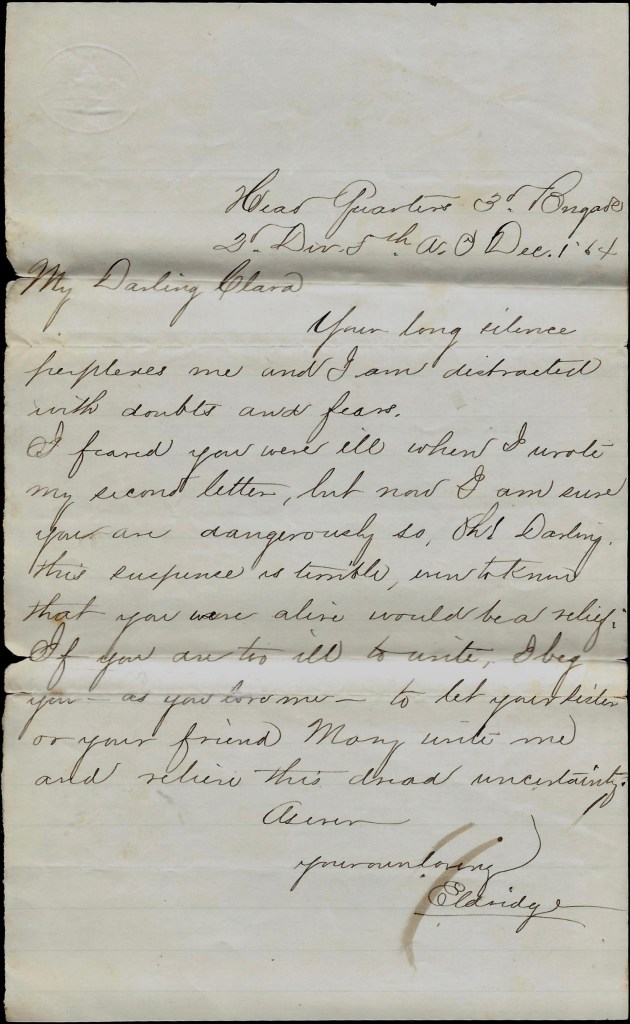 Head Quarters 3d. Brigade
2d Div. 5th A. C Dec. 1' 64
My Darling Clara
Your long silence
perplexes me and I am distracted
with doubts and fears.
I feared you were ill when I wrote
my second letter, but now I am sure
you are dangerously so, Oh! Darling,
this suspense is terrible, even to know
that you were alive would be a relief;
If you are too ill to write, I beg
you – as you love me – to let your sister
or your friend Mary write me
and relieve this dread uncertainty.
As ever
your own loving
Eldridge